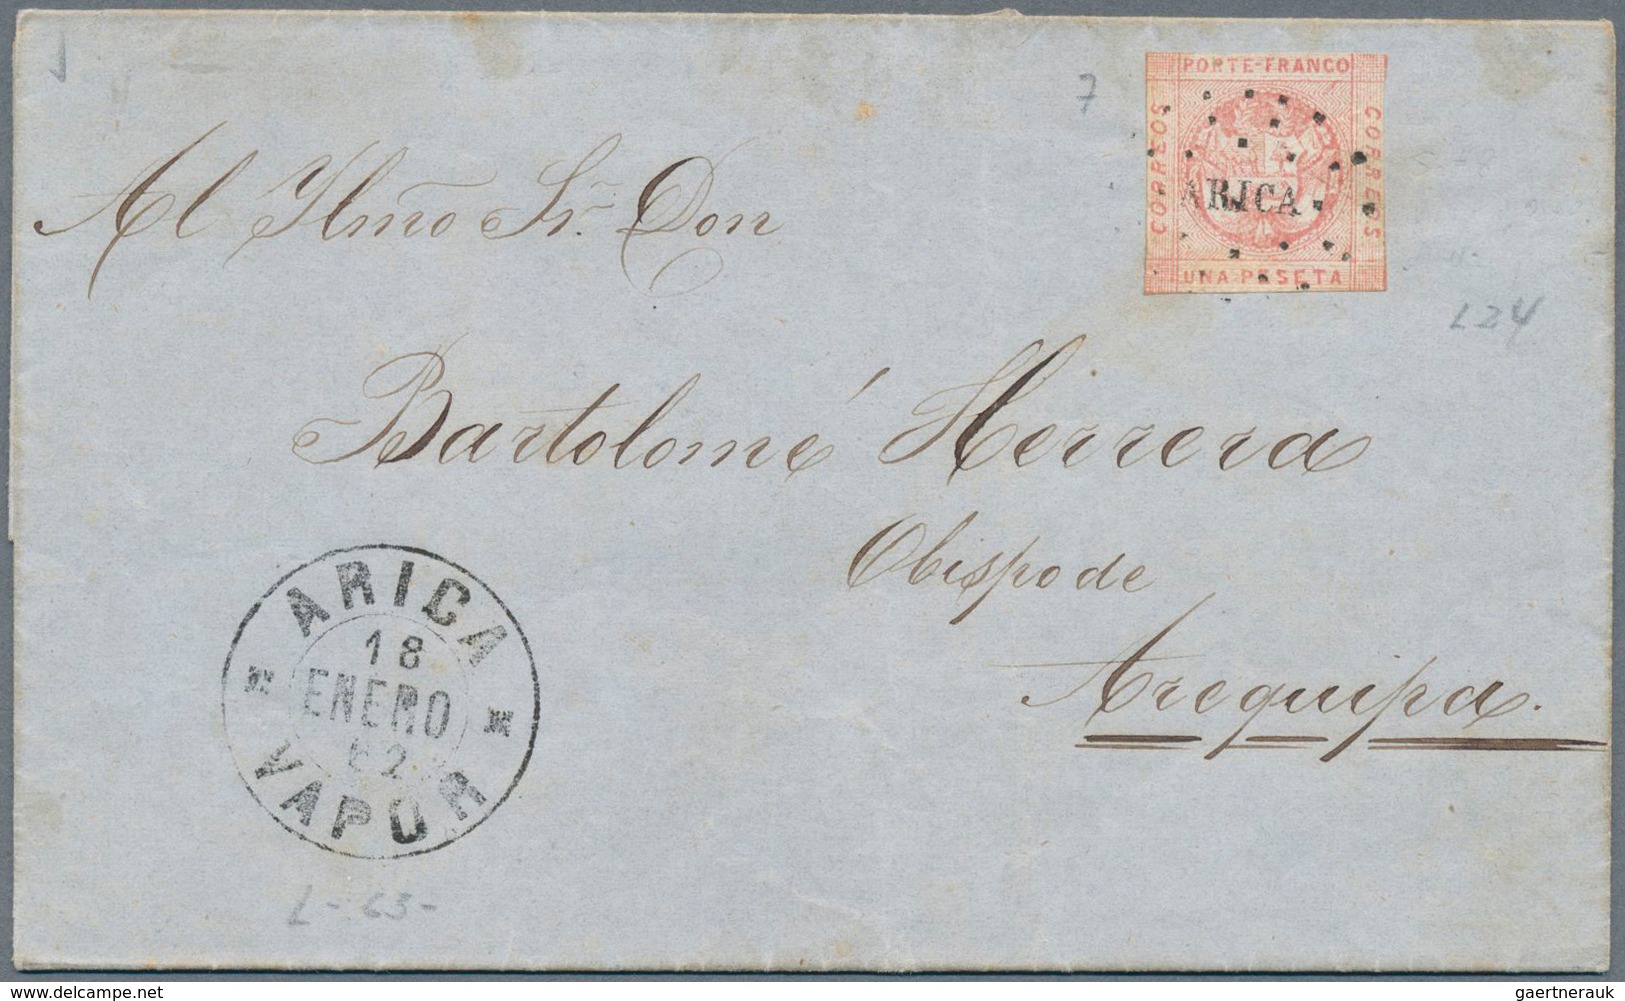 7
PORTE-FRANCO
CORREOS
CORREOS
ARICA
UNA PESETA
L24
Al Ylmo Sr. Don
Bartolomé Herrera
Obispo de
Arequipa.
ARICA
18
ENERO
62
VAPOR
L-63-
gaertnerauk